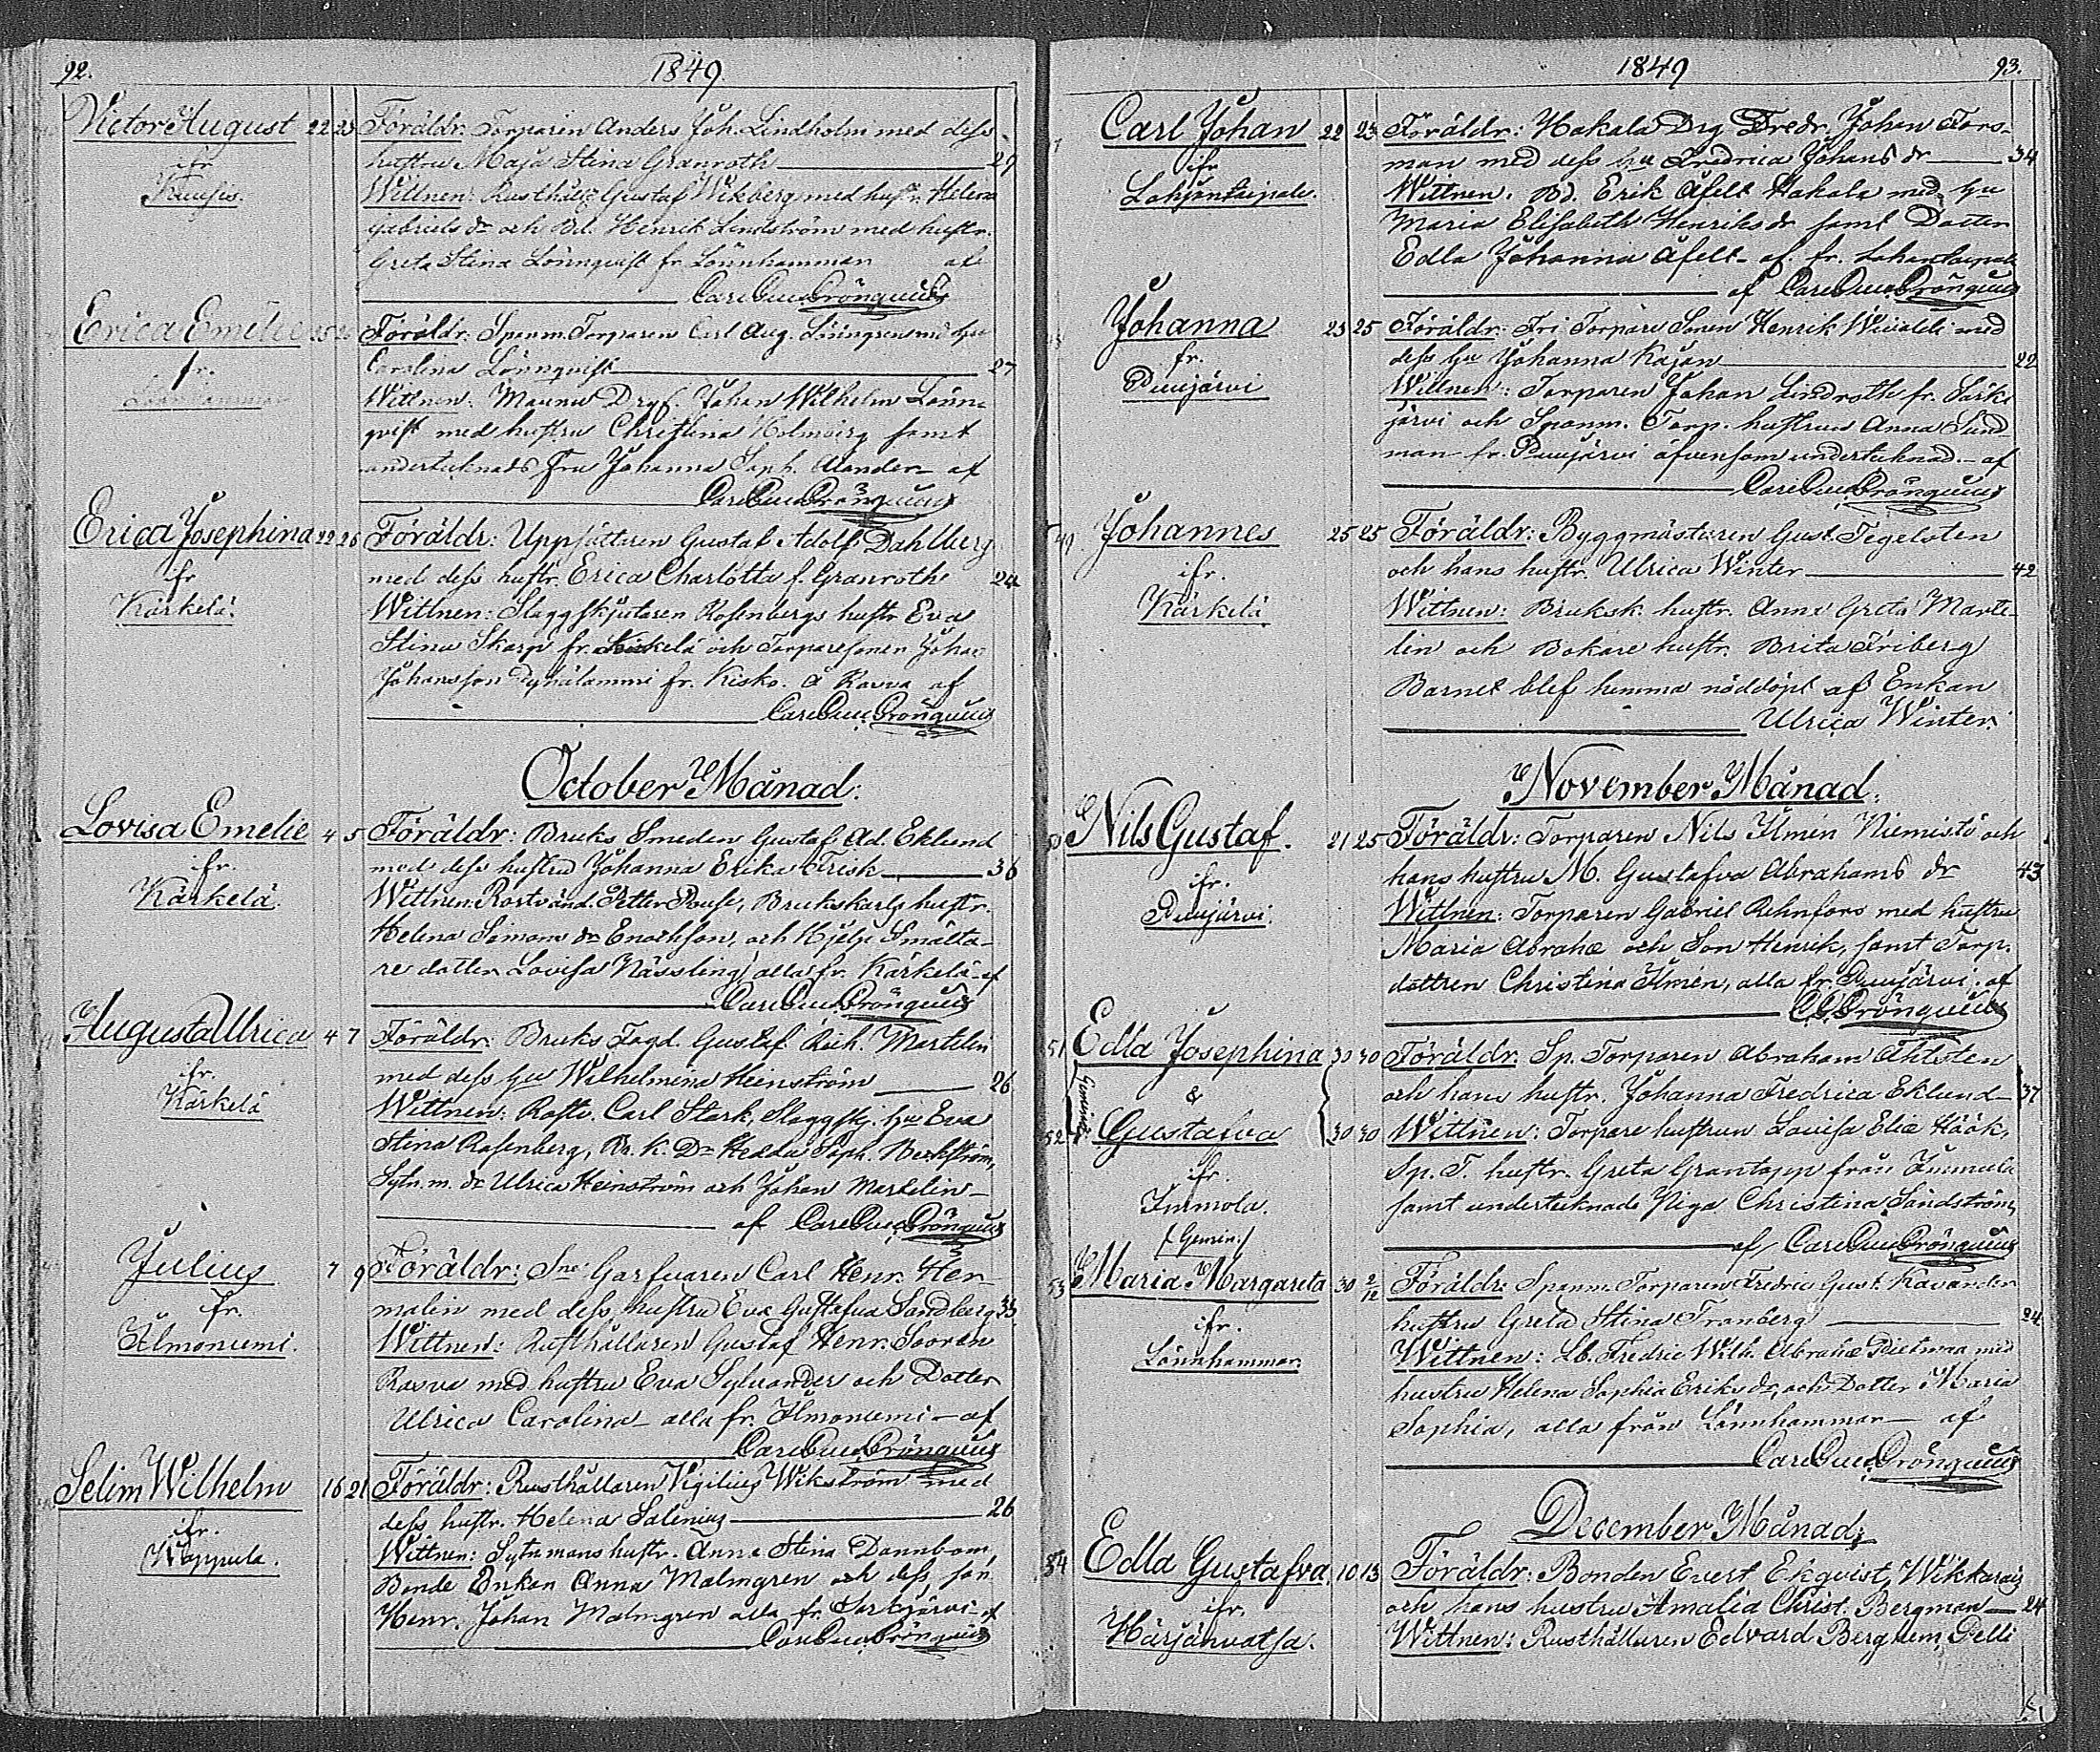 92.
1849
Victor August 22 23 Föräldr: Torparen Anders Joh. Lindholm med dess
ifr hustru Maja Stina Granroth 29
Wittnen: Rusthåll Gustaf Wikberg med hustr. Helena
Gabriels dr och Bd. Henrik Lindström med hustr.
Greta Stina Lönnqvist fr. Lönnhammar af
Erica Emelie 25 Föräldr: Spanm. Torparen Carl Aug. Löningren med hu
fr. Carolina Lönnqvist 27
Lönnhammar Wittnen: Johan Wilhelm Lönn-
qvist med hustru Christina Holmberg samt
undertecknads Fru Johanna Soph. Alander af
Erica Josephina 22 26 Föräldr: Uppsättaren Gustaf Adolf Dahlberg
ifr med dess hustr. Erica Charlotta f. Granroth 24
Kärkelä. Wittnen: Slaggskjutaren Rosenbergs hustr Eva
Stina Skarp fr. Kärkelä och Torparesonen Johan
Johansson fr. Kisko. af
October Månad:
Lovisa Emelie 4 5 Föräldr: Bruks Smeden Gustaf Ad. Eklund
ifr. med dess hustru Johanna Erika Frisk 36
Kärkelä Wittnen: Rostvänd. Petter Bruks karls hustr.
Helena Simons dr Enochson, och Hjelp Smälta-
re dotter Lovisa Nässling alla fr. Kärkelä af
Augusta Ulrica 4 7 Föräldr: Bruks Fogd. Gustaf Rich. Martelin
ifr. med dess hu Wilhelmina Heinström 26
Kärkelä Wittnen: Rostv. Carl Stark, Slaggskj. hu Eva
Stina Rosenberg, Br. K. Dr Hedda Soph. Berkström,
Sytn. m. dr Ulrica Heinström och Johan Martelin
af
Julius 7 9 Föräldr: Garfvaren Carl Henr. Her-
fr. malin med dess hustru Eva Gustafva Sandberg 33
Ilmoniemi. Wittnen: Rusthållaren Gustaf Henr. Sooren
med hustru Eva Sylvander och Dotter
Ulrica Carolina alla fr. Ilmoniemi af
Selim Wilhelm 16 21 Föräldr: Rusthållaren Vigilius Wikström med
ifr. dess hustr. Helena Salenius 26
Woppula. Wittnen: Sytnmans hustr. Anna Stina Dannbom,
Bonde Enkan Anna Malmgren och dess son
Henr. Johan Malmgren alla fr. Särkjärvi af
1849
93.
Carl Johan 22 23 Föräldr: Hakala Drg Fredr. Johan Fors-
ifr man med dess hu Fredrica Johans dr 34
Lohjantaipale. Wittnen. Bd. Erik Åfelt Hakala med hu
Maria Elisabeth Henriks dr samt Dotter
Edla Johanna Åfelt af. fr. Lohjantaipale
af
Johanna 23 25 Föräldr: Fri Torpare Sonen Henrik med
fr. dess hu Johanna Kajan 22
Puujärvi Wittnen: Torparen Johan Lindroth fr. Särki
järvi och Spanm. Torp. hustrun Anna Sund
man fr. Puujärvi äfvensom undertecknad. af
49 Johannes 25 25 Föräldr: Byggmästaren Gust. Tegelsten
ifr. och hans hustr. Ulrica Winter 42
Kärkelä Wittnen: Bruksk. hustr. Anna Greta Marte-
lin och Bokare hustr. Brita Friberg
Barnet blef hemma nöddöpt af Enkan
Ulrica Winter.
November Månad.
50 Nils Gustaf. 21 25 Föräldr: Torparen Nils Ilmén Niemistö och
ifr. hans hustru M. Gustafva Abrahams dr 43
Puujärvi. Wittnen: Torparen Gabriel Rehnfors med hustru
Maria Abrahe och Son Henrik, samt Torp.
dottren Christina Ilmén, alla fr. Puujärvi. af
51 Edla Josephina 30 30 Föräldr. Sp. Torparen Abraham Ahlsten
& och hans hustr. Johanna Fredrica Eklund 37
52 Gustafva 30 30 Wittnen: Torpare hustrun Lovisa Eliæ Höök,
ifr. Sp. T. hustr. Greta Grantopp från Immola
Immola. samt undertecknade Piga Christina Sandström,
/Gemin./ af
53 Maria Margareta 30 2/12 Föräldr: Spanm. Torparen Fredric Gust. Kavander
ifr. hustru Greta Stina Tranberg 24
Lönnhammar Wittnen: Lb. Fredric Wilh. Abrahæ med
hustru Helena Sophia Eriks dr, och Dotter Maria
Sophia, alla från Lönnhammar af
December Månad;
54 Edla Gustafva 10 13 Föräldr: Bonden Evert Ekqvist,
ifr. och hans hustru Amalia Christ. Bergman 24
Härjänvatsa. Wittnen: Rusthållaren Edvard Berghem,